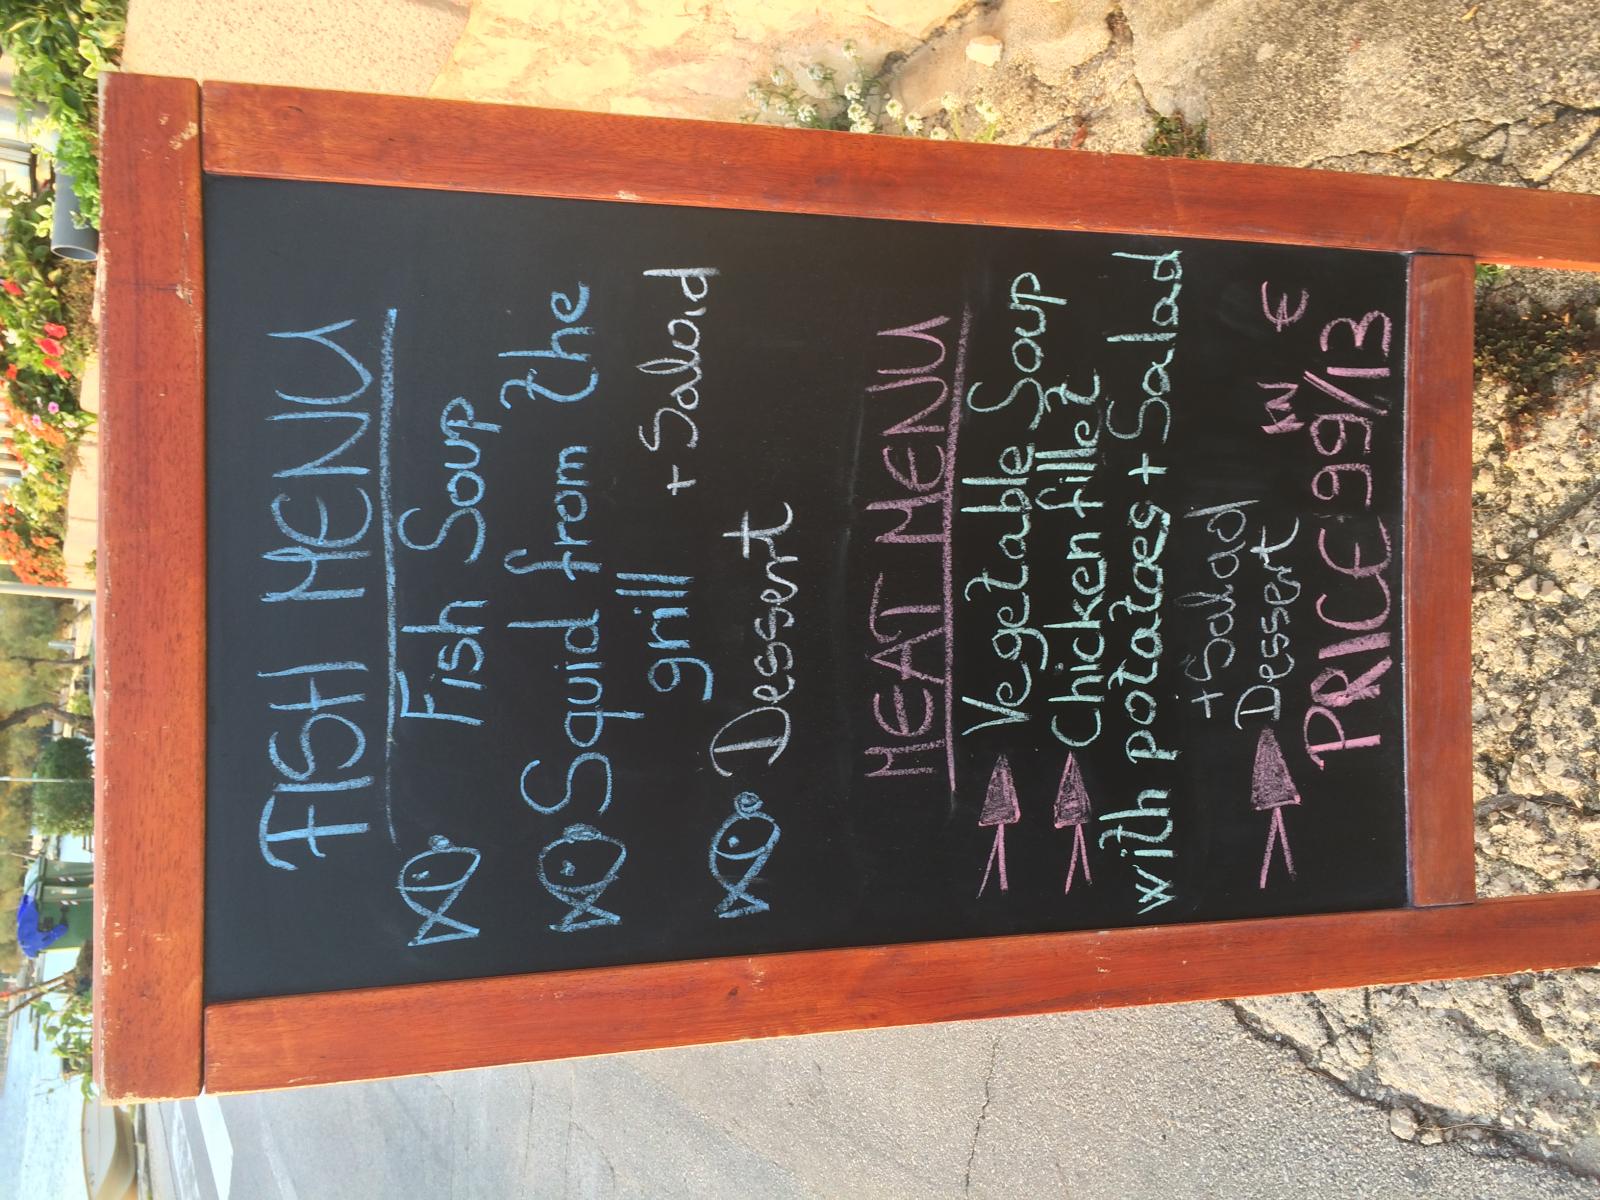 FISH MENU
Fish Soup
Squid from the
grill + Salad
Dessert
MEAT MENU
Vegetable Soup
Chicken fillet
with potatoes + Salad
+ Salad
Dessert
KN €
PRICE 99/13